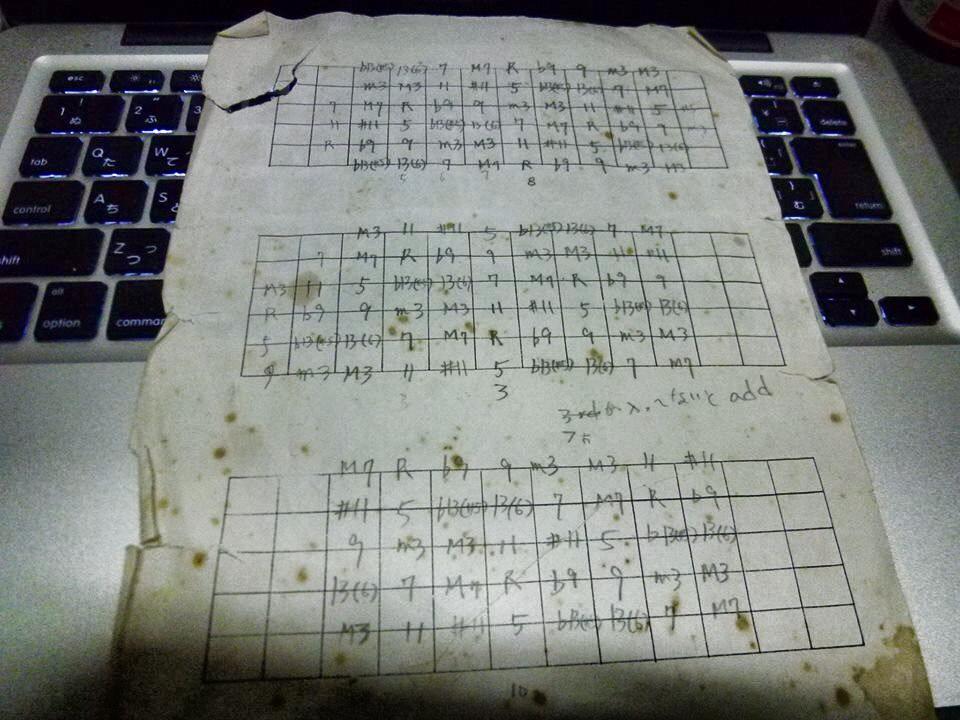 b13(#5) 13(6) 7 M7 R b9 9 m3 M3
m3 M3 11 #11 5 b13(#5) 13(6) 7 M7
7 M7 R b9 9 m3 M3 11 #11 5
11 #11 5 b13(#5) 13(6) 7 M7 R b9 9 m3
R b9 9 m3 M3 11 #11 5 b13(#5) 13(6)
b13(#5) 13(6) 7 M7 R b9 9 m3 M3
5 6 7 8
m3 11 #11 5 b13(#5) 13(6) 7 M7
7 M7 R b9 9 m3 M3 11 #11
M3 11 5 b13(#5) 13(6) 7 M7 R b9 9
R b9 9 m3 M3 11 #11 5 b13(#5) 13(6)
5 b13(#5) 13(6) 7 M7 R b9 9 m3 M3
9 m3 M3 11 #11 5 b13(#5) 13(6) 7 M7
3 3
add
M7 R b9 9 m3 M3 11 #11
#11 5 b13(#5) 13(6) 7 M7 R b9
9 m3 M3 11 #11 5 b13(#5) 13(6)
13(6) 7 M7 R b9 9 m3 M3
M3 11 #11 5 b13(#5) 13(6) 7 M7
10
esc
1 ! ぬ
2 " ふ
tab
Q た
W て
control
A ち
S と
shift
Z つ っ
alt
option
comman
delete
return